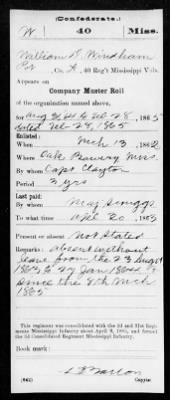 (Confederate.)
W 40 Miss.
William D. Windham
Pvt, Co. A, 40 Reg't Mississippi Vols.
Appears on
Company Muster Roll
of the organization named above,
for Aug 31/64 to Feb 28, 1865
dated Feb 28, 1865
When Mch 13, 1862
Where Oak Bowery Miss
By whom Capt Clayton
Period 3 yrs
Last paid:
By whom Maj Scruggs
To what time Apl 20, 1863
Present or absent Not Stated
Remarks: absent without
leave from the 23 August
1863 to 29 Jan 1864 &
since the 8th Mch
1865
This regiment was consolidated with the 3d and 31st Regiments
Mississippi Infantry about April 9, 1865, and formed
the 3d Consolidated Regiment Mississippi Infantry.
Book mark:
(642) Copyist.